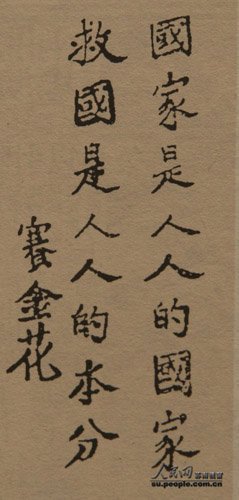 國家是人人的國家
救國是人人的本分
賽金花
人民网
su.people.com.cn